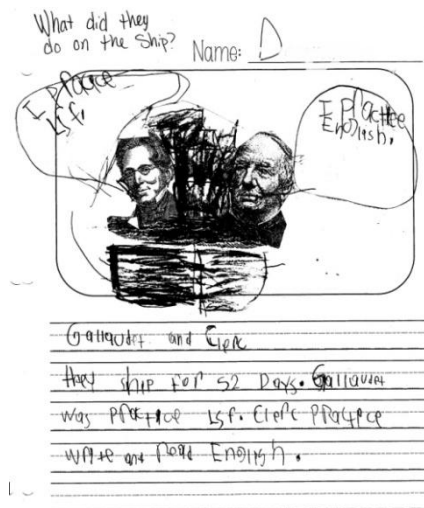 What did they
do on the Ship?
Name: D
I prace
Lsf.
I practee
English.
Gallaudet and Clerc
they ship for 52 Days. Gallaudet
was practice Lsf. Clerc practice
write and read English.